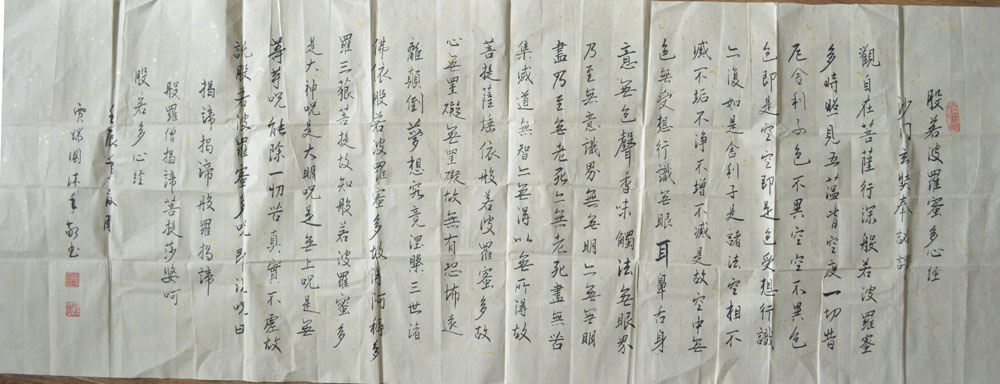 般若波羅蜜多心經
沙门玄奘奉詔譯
觀自在菩薩行深般若波羅蜜
多時照見五蕴皆空度一切苦
厄舍利子色不異空空不異色
色即是空空即是色受想行識
亦復如是舍利子是諸法空相不
滅不垢不净不增不滅是故空中無
色無受想行識無眼耳鼻舌身
意無色聲香味觸法無眼界
乃至無意識界無無明亦無無明
盡乃至無老死亦無老死盡無苦
集滅道無智亦無得以無所得故
菩提薩埵依般若波羅蜜多故
心無罣礙無罣礙故無有恐怖遠
離顛倒夢想究竟涅槃三世诸
佛依般若波羅蜜多故得阿耨多
羅三藐菩提故知般若波羅蜜多
是大神呪是大明呪是無上呪是無
等等呪能除一切苦真實不虚故
説般若波羅蜜多呪即説呪曰
揭諦揭諦般羅揭諦
般羅僧揭諦菩提莎婆呵
般若多心經
壬辰年夏月